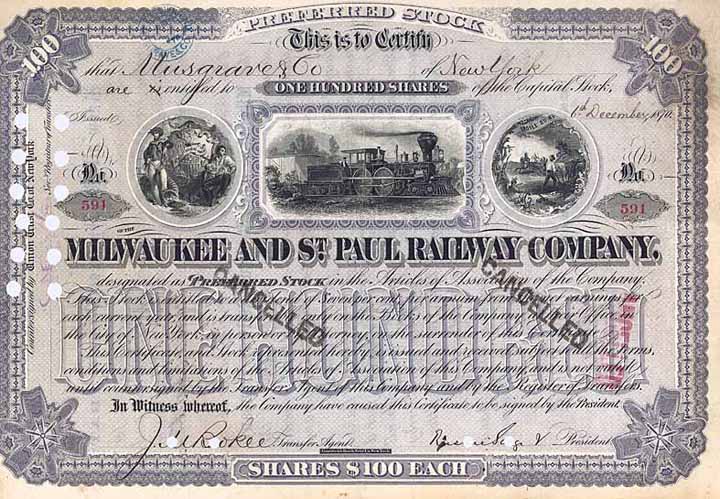 PREFERRED STOCK
100
100
This is to Certify
that Musgrave & Co of New York
are entitled to ONE HUNDRED SHARES of the Capital Stock,
Issued
6th December, 1870.
No.
No.
591
591
OF THE
MILWAUKEE AND ST. PAUL RAILWAY COMPANY,
designated as PREFERRED STOCK in the Articles of Association of the Company.
This Stock is entitled to a dividend of Seven per cent per annum from the net earnings in
each current year and is transferable only on the Books of the Company at their Office in
the City of New York, in person or by attorney on the surrender of this Certificate.
This Certificate, and Stock represented hereby is issued and received subject to all the terms,
conditions and limitations of the Articles of Association of this Company, and is not valid
until countersigned by the Transfer Agent of this Company and by the Register of Transfers.
ONE HUNDRED
CANCELLED
CANCELLED
In Witness whereof, the Company have caused this Certificate to be signed by the President.
Transfer Agent
President
SHARES $100 EACH
Countersigned by Union Trust Co. of New York